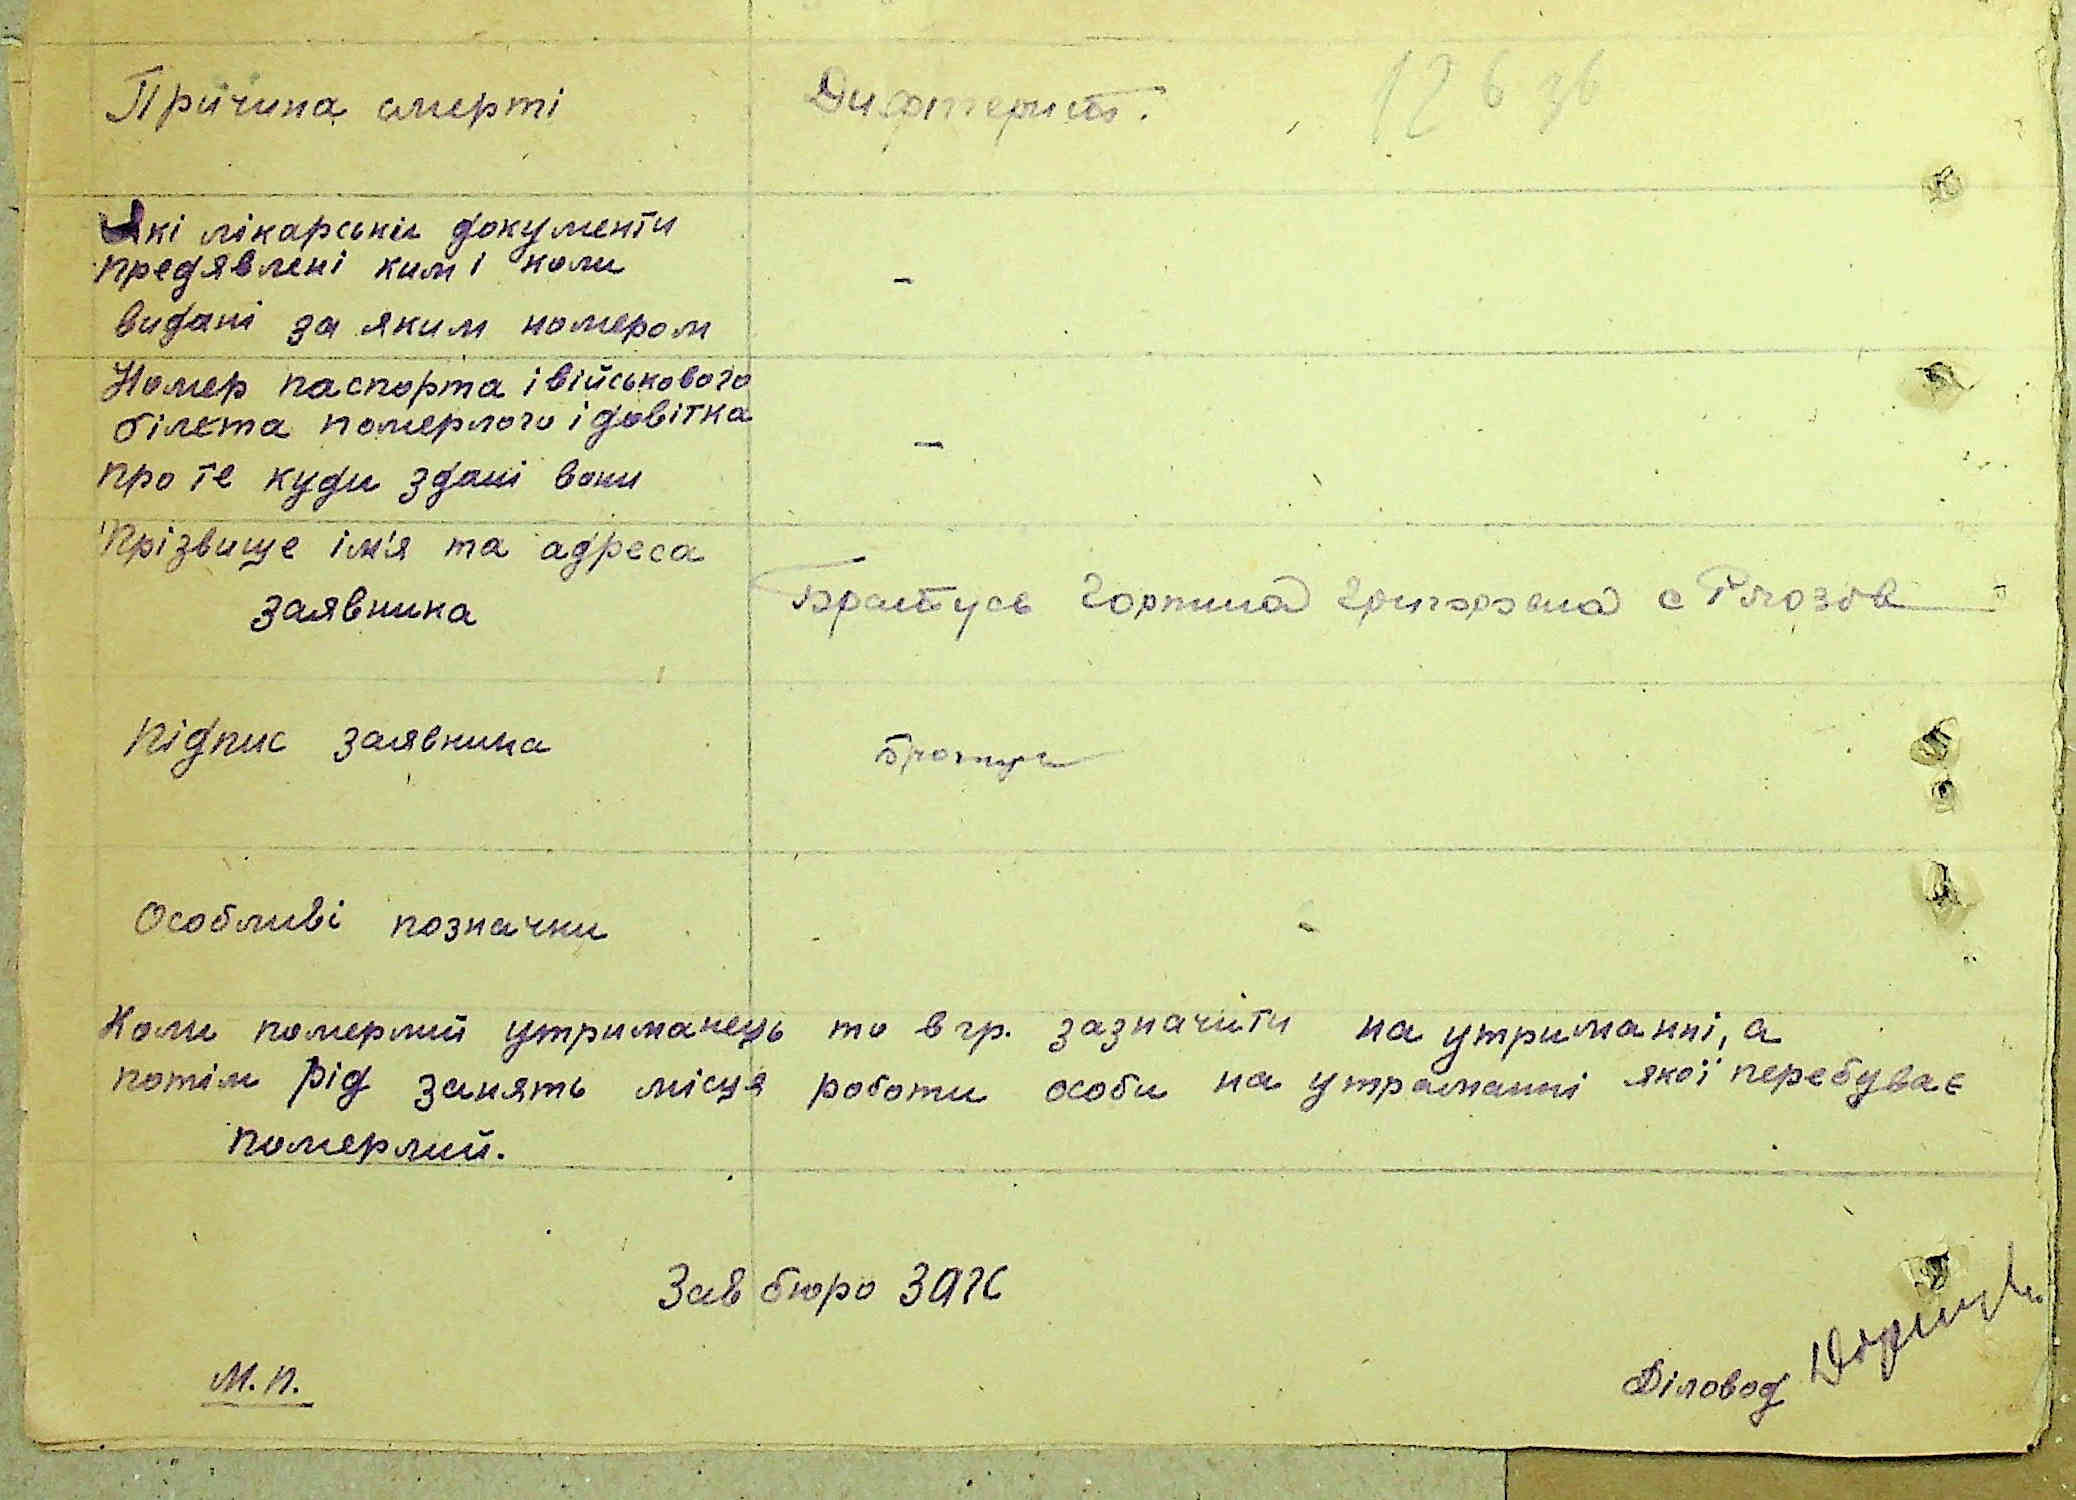 Причина смерти Дифтерит. 126 зв
Які лікарські документи
предявлені ким і коли -
видані за яким номером
Номер паспорта і військового
білета померлого і довітка -
про те куди здані вони
Прізвище ім'я та адреса
заявника Братусь Горпина Григоровна с
Підпис заявника Братусь
Особливі позначки -
Коли померлий утриманець то в гр. зазначити на утриманні, а
потім рід занять місця роботи особи на утриманні якої перебуває
померлий.
Зав бюро ЗАГС
М.П. Діловод